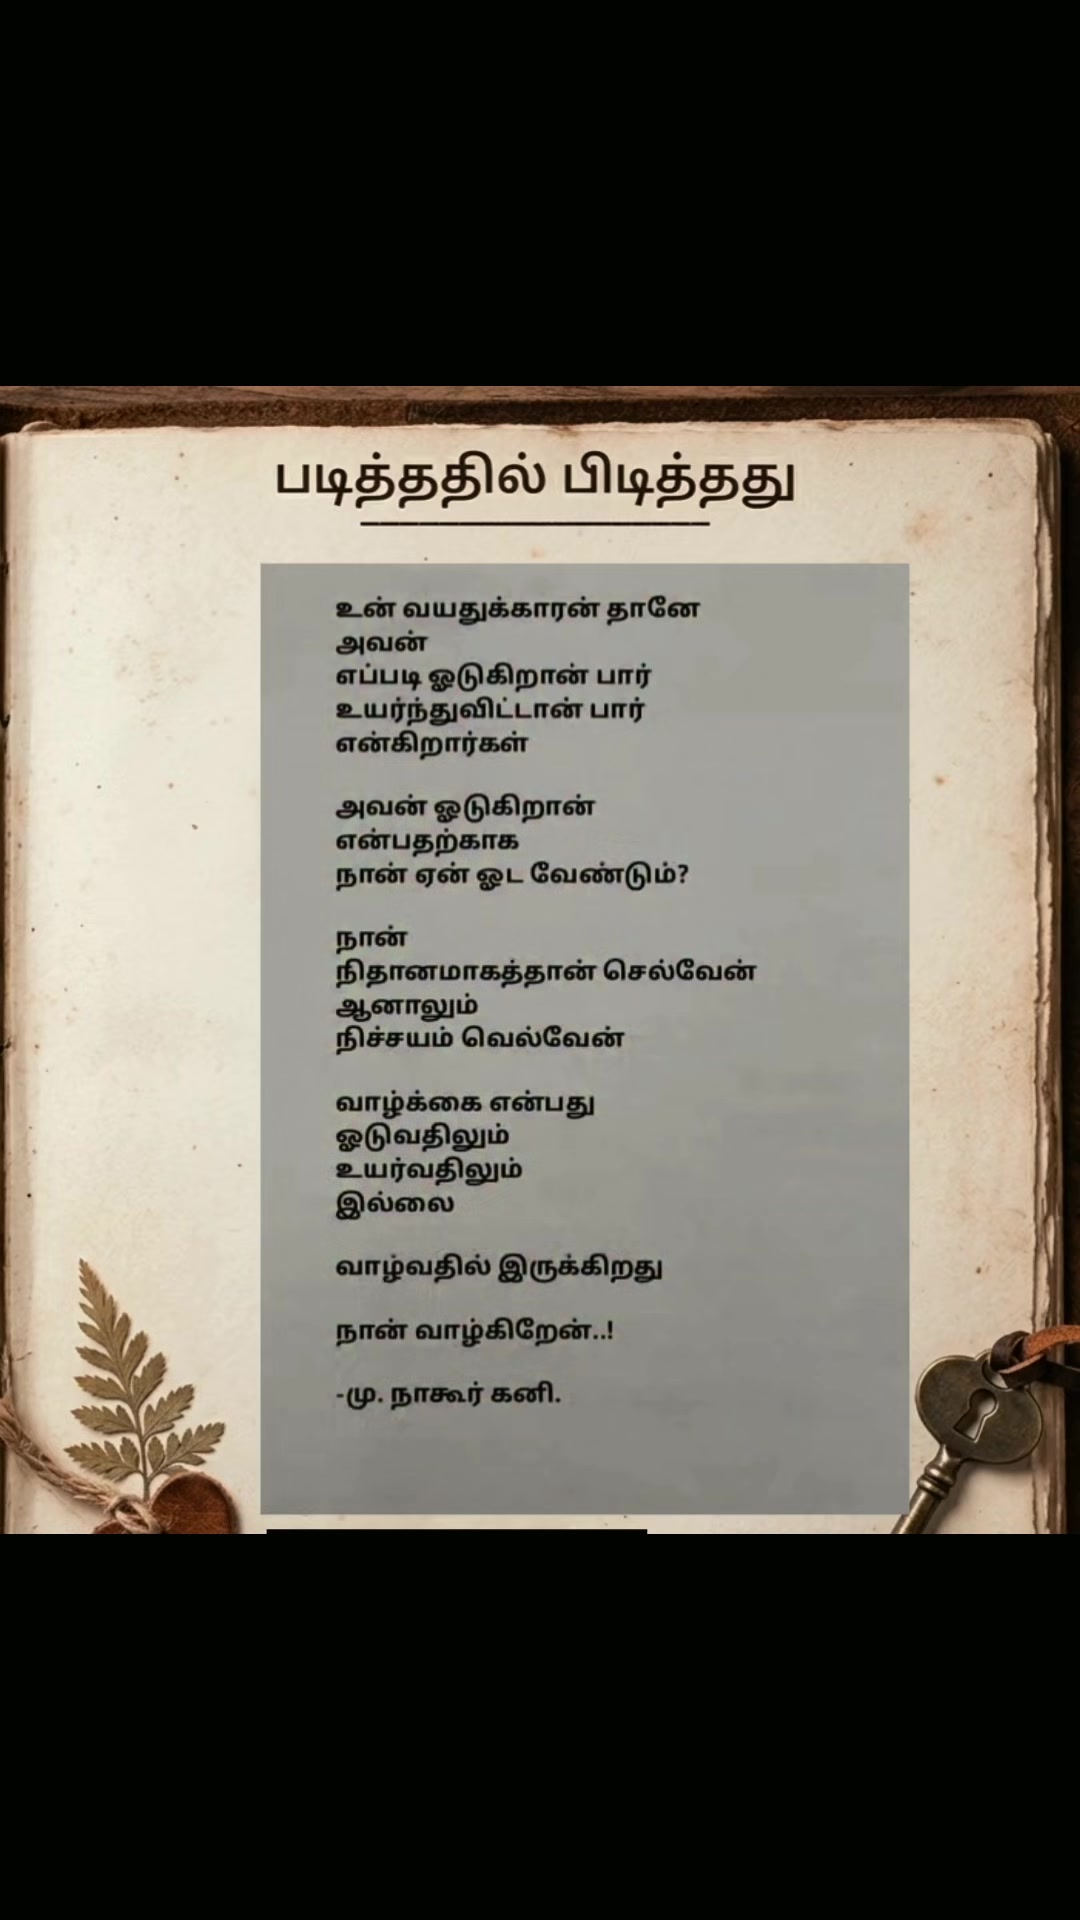 படித்ததில் பிடித்தது
உன் வயதுக்காரன் தானே
அவன்
எப்படி ஓடுகிறான் பார்
உயர்ந்துவிட்டான் பார்
என்கிறார்கள்
அவன் ஓடுகிறான்
என்பதற்காக
நான் ஏன் ஓட வேண்டும்?
நான்
நிதானமாகத்தான் செல்வேன்
ஆனாலும்
நிச்சயம் வெல்வேன்
வாழ்க்கை என்பது
ஓடுவதிலும்
உயர்வதிலும்
இல்லை
வாழ்வதில் இருக்கிறது
நான் வாழ்கிறேன்..!
-மு. நாகூர் கனி.